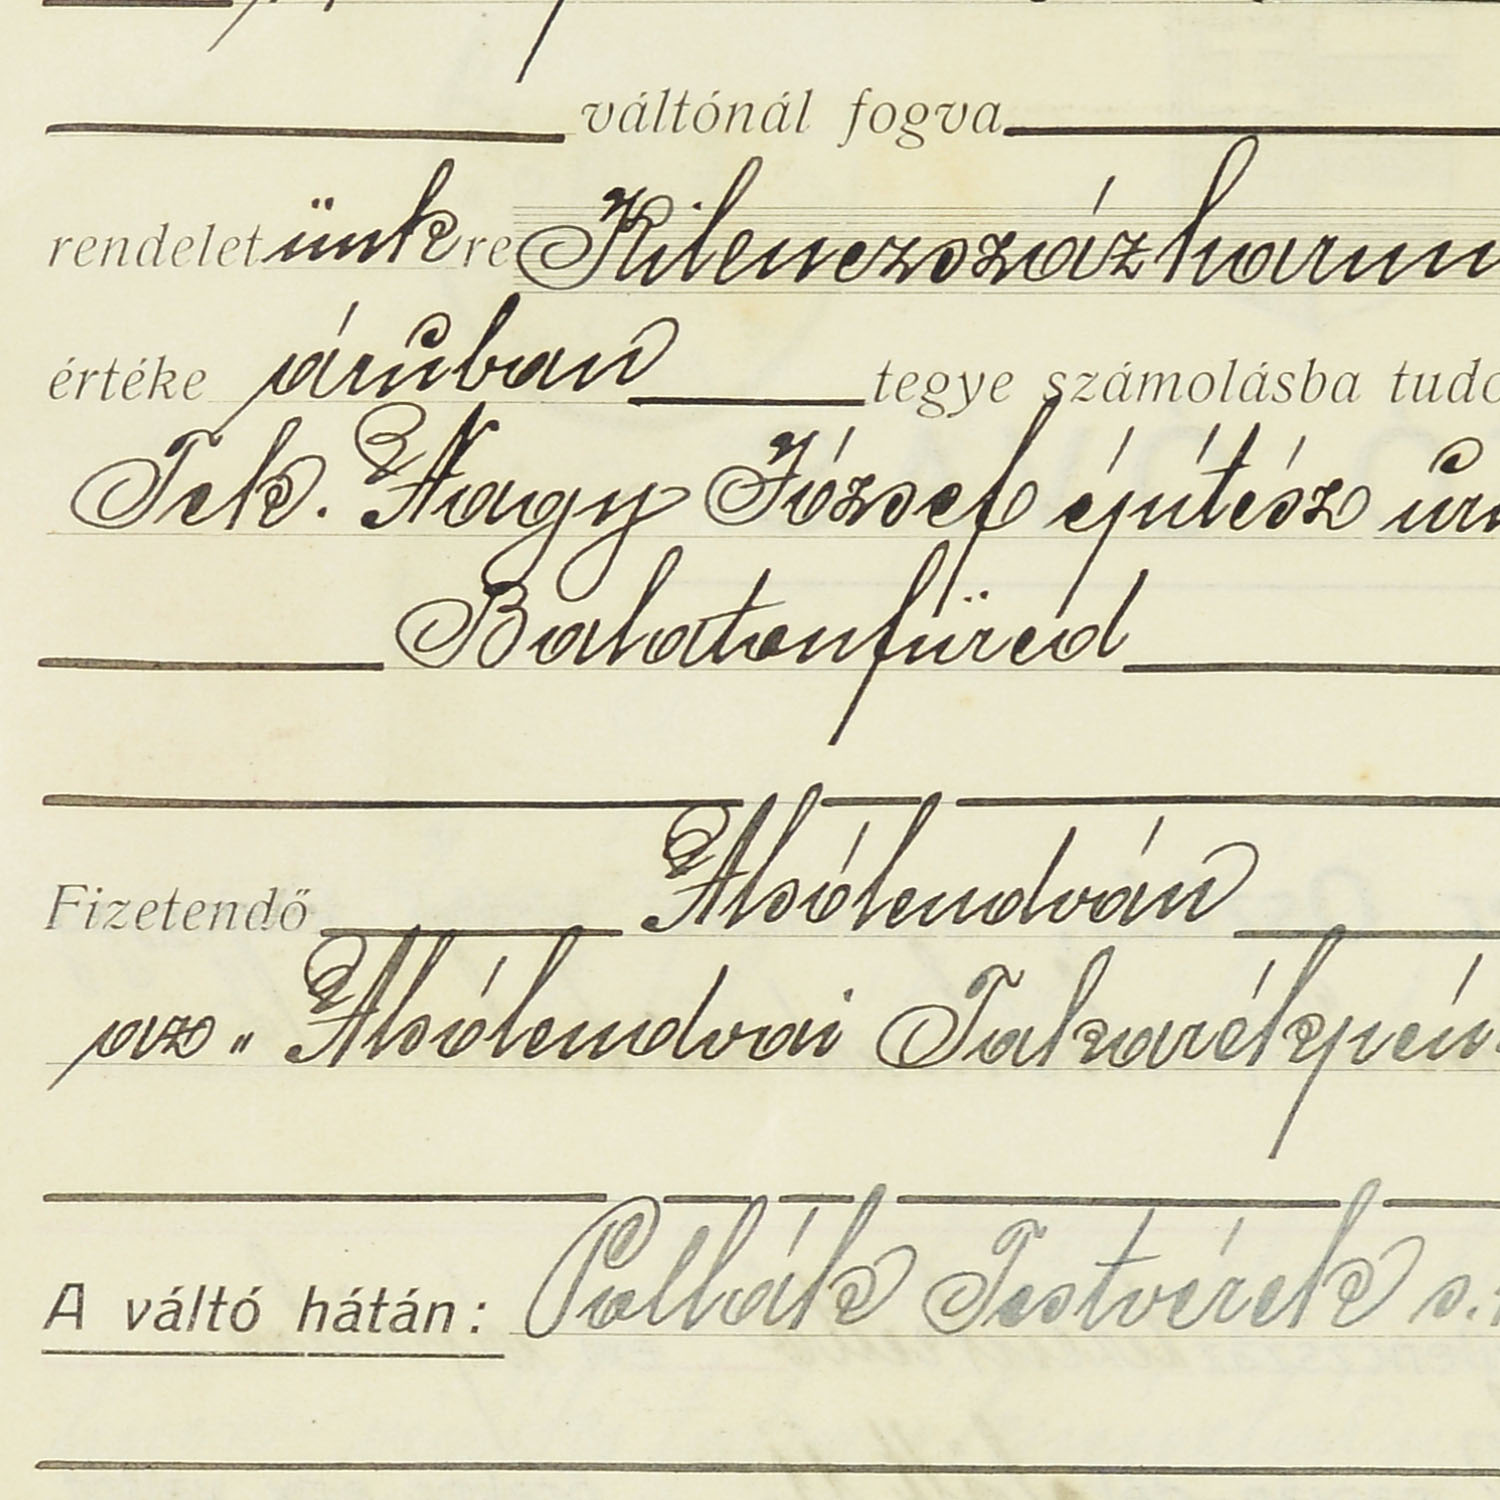 váltónál fogva
rendelet ünk re Kilenczszázharmi
értéke áruban tegye számolásba tudo
Tek. Nagy József építész úrn
Balatonfüred
Fizetendő Alsólendván
az „ Alsólendvai Takarékpén
A váltó hátán: Pollák Testvérek s.